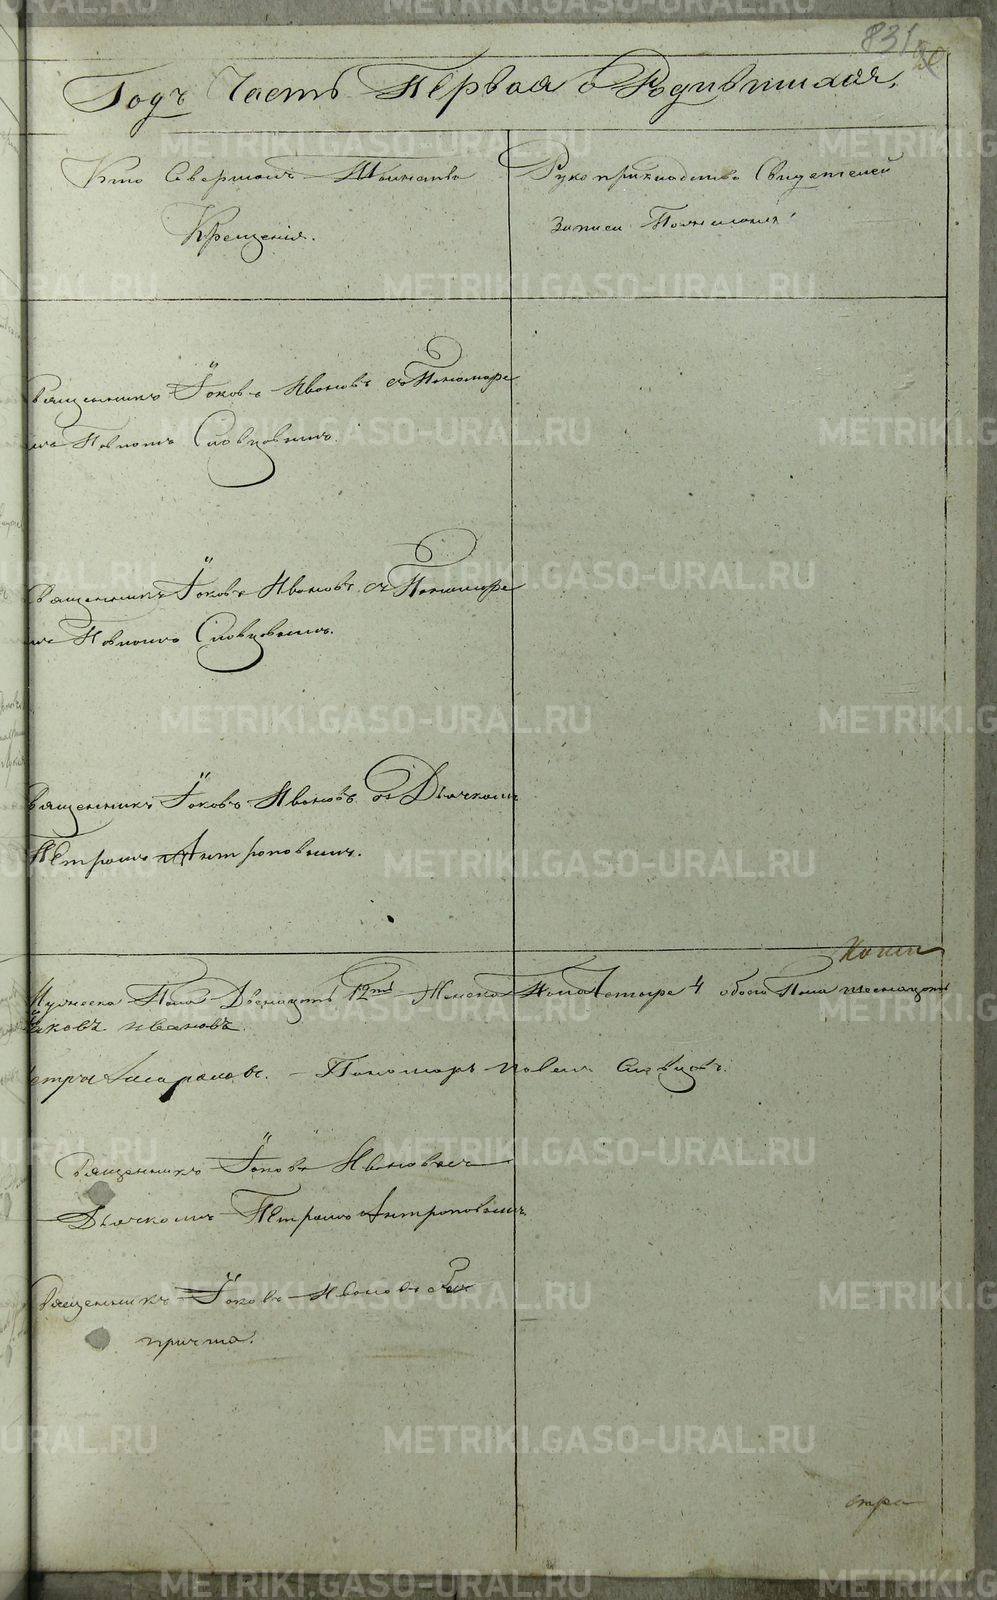 831
Годъ Часть Первая о Родившихся.
Кто Совершалъ Таинство
Крещенія.
Рукоприкладство Свидетелей
Записи По желанію
священникъ Іаковъ Ивановъ съ Пономаре
мъ Павломъ Словцовымъ.
священникъ Іаковъ Ивановъ съ Пономаре
мъ Павломъ Словцовымъ.
священникъ Іаковъ Ивановъ съ Дьячкомъ
Петромъ Антроповымъ.
Мужеска Пола Двенацать 12ть Женска Пола Четыре 4 обоего Пола шеснацать
Іаковъ Ивановъ.
Петръ Пономарь Павелъ Словцовъ.
Священникъ Іаковъ Ивановъ съ
Дьячкомъ Петромъ Антроповымъ
Священникъ Іаковъ Ивановъ
причта.
METRIKI.GASO-URAL.RU